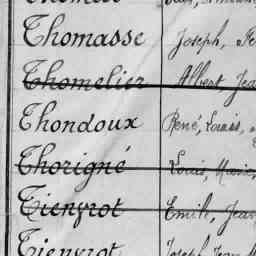 Thomasse Joseph, Fe
Thomelier Albert Jea
Thondoux René, Louis,
Thorigné Louis, Marie,
Tienrot Emile, Jean
Tienrot Joseph, Jean